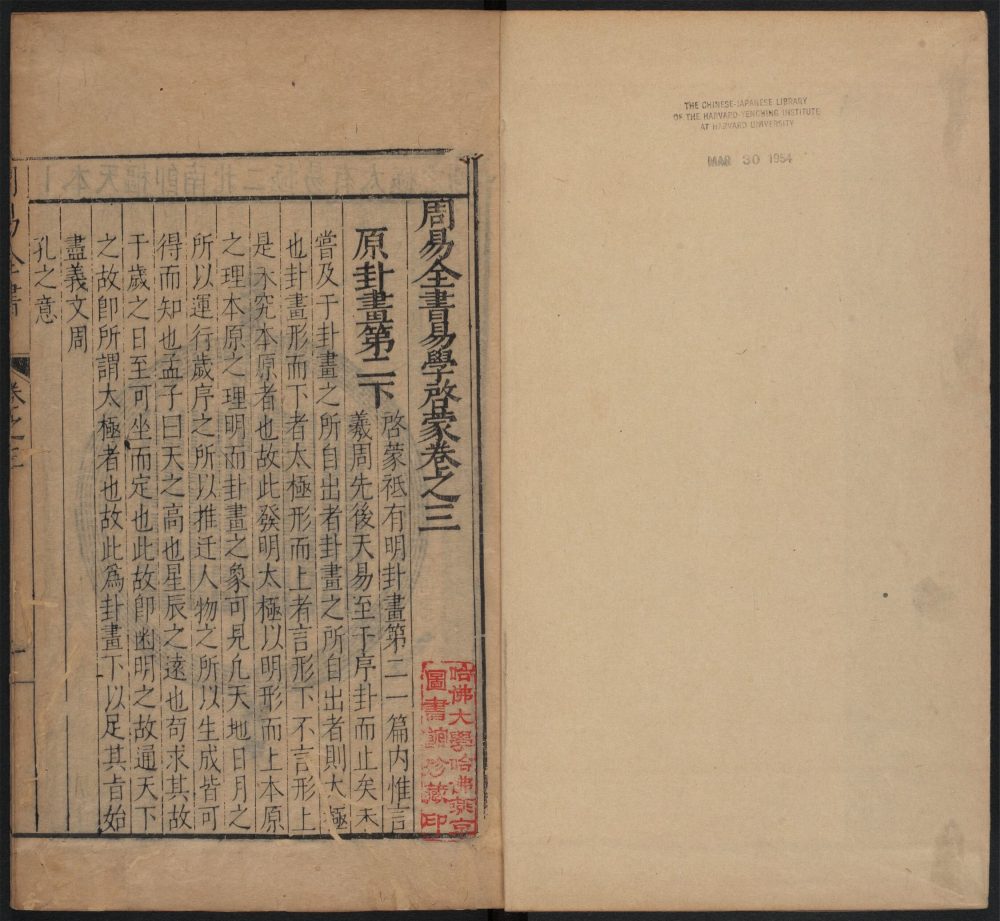 周易全書易學啓蒙卷之三
原卦畫第二下
啓蒙祗有明卦畫第二一篇内惟言
羲周先後天易至于序卦而止矣未
嘗及于卦畫之所自出者卦畫之所自出者則太極
也卦畫形而下者太極形而上者言形下不言形上
是未究本原者也故此發明太極以明形而上本原
之理本原之理明而卦畫之象可見凢天地日月之
所以運行歲序之所以推迁人物之所以生成皆可
得而知也孟子曰天之高也星辰之遠也苟求其故
千歲之日至可坐而定也此故卽幽明之故通天下
之故卽所謂太極者也故此爲卦畫下以足其旨始
盡羲文周
孔之意
卷之三
哈佛大學哈佛燕京
圖書館珍藏印
THE CHINESE-JAPANESE LIBRARY
OF THE HARVARD-YENCHING INSTITUTE
AT HARVARD UNIVERSITY
MAR 30 1954